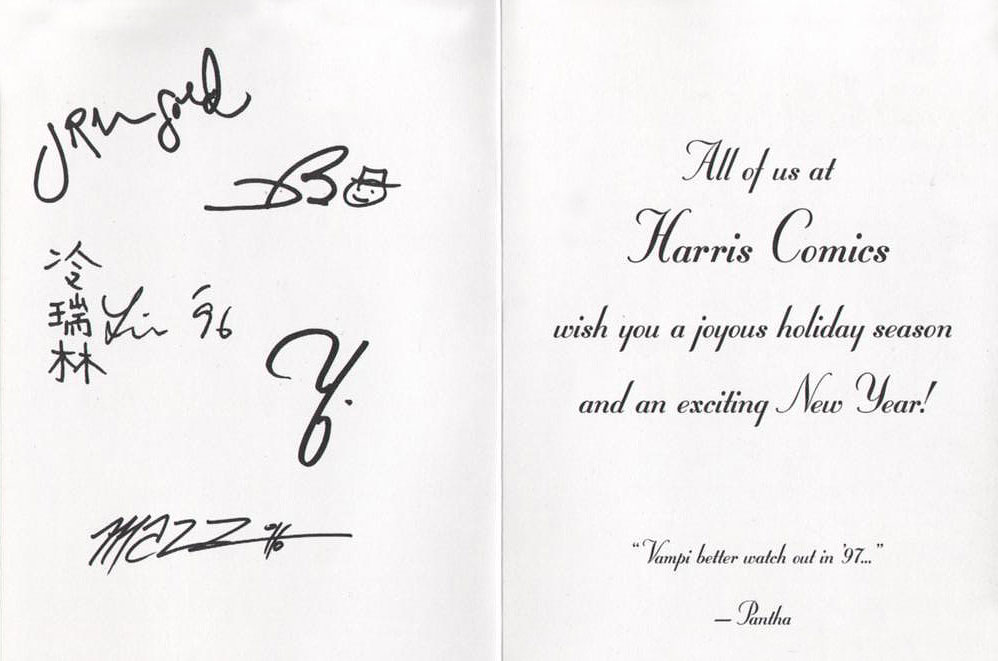 冷
瑞
林
Lin '96
Y.
MAZZ 96
All of us at
Harris Comics
wish you a joyous holiday season
and an exciting New Year!
“Vampi better watch out in '97...”
— Pantha